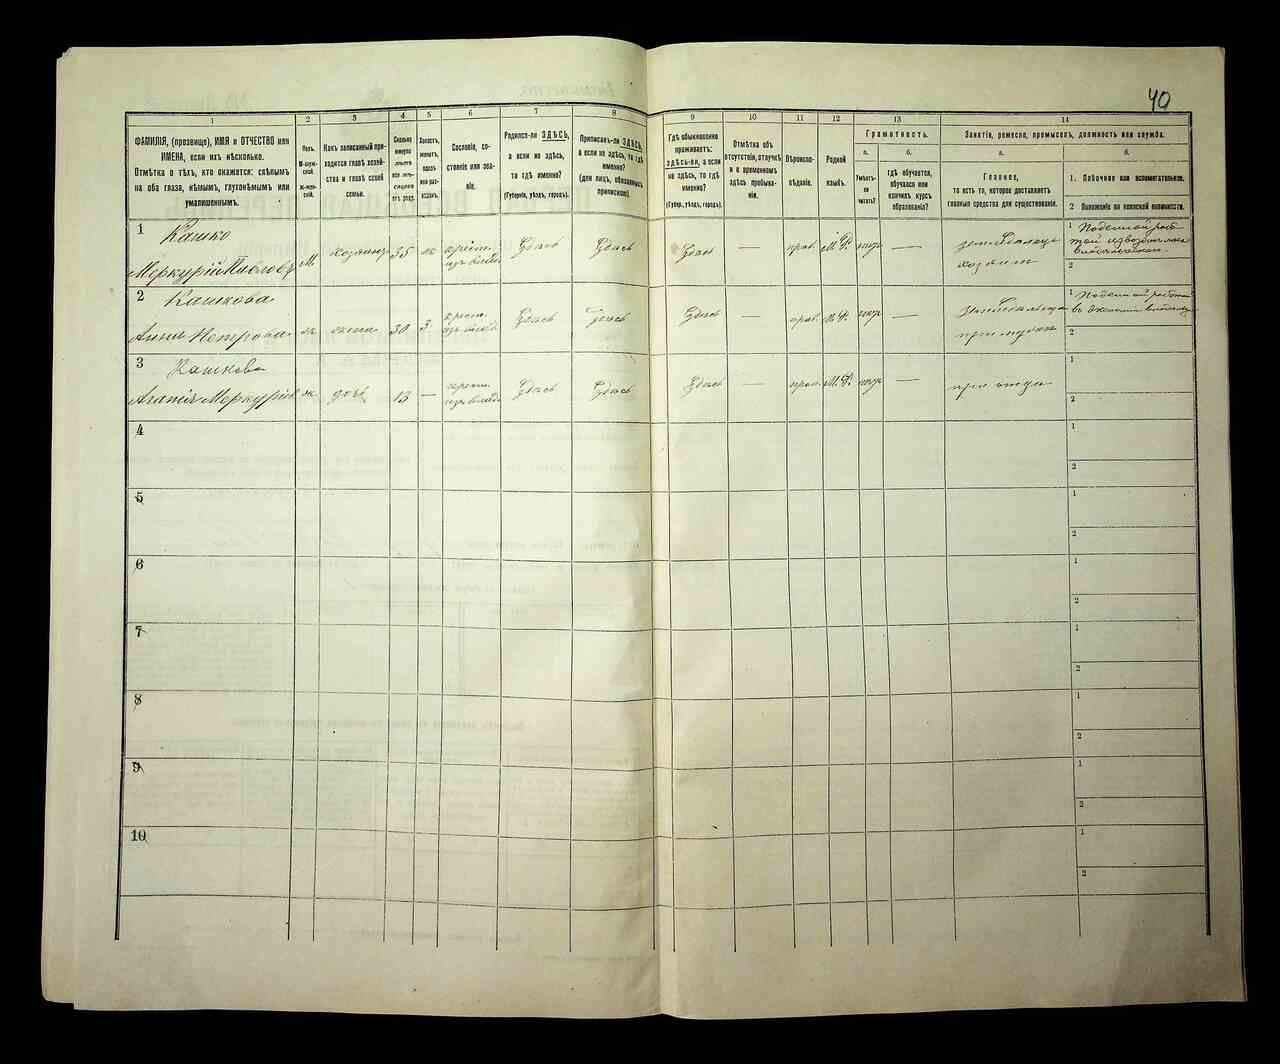 40
1
2
3
4
5
6
7
8
9
10
11
12
13
14
ФАМИЛІЯ, (прозвище), ИМЯ и ОТЧЕСТВО или
ИМЕНА, если ихъ нѣсколько.
Отмѣтка о тѣхъ, кто окажется: слѣпымъ
на оба глаза, нѣмымъ, глухонѣмымъ или
умалишеннымъ.
Полъ.
М-муж-
ской.
Ж-жен-
скій.
Какъ записанный при-
ходится главѣ хозяй-
ства и главѣ своей
семьи.
Сколько
минуло
лѣтъ
Холостъ,
женатъ,
вдовъ
или раз-
веденъ.
Сословіе, со-
стояніе или зва-
ніе.
Родился-ли ЗДѢСЬ,
а если не здѣсь,
то гдѣ именно?
(Губернія, уѣздъ, городъ).
Приписанъ-ли ЗДѢСЬ,
а если не здѣсь, то гдѣ
именно?
(для лицъ, обязанныхъ
припискою).
Гдѣ обыкновенно
проживаетъ:
ЗДѢСЬ-ли, а если
не здѣсь, то гдѣ
именно?
(Губер., уѣздъ, городъ).
Отмѣтка объ
отсутствіи, отлучкѣ
и о временномъ
здѣсь пребыва-
ніи.
Вѣроиспо-
вѣданіе.
Родной
языкъ.
Грамотность.
а.
Умѣетъ-
ли
читать?
б.
Гдѣ обучается,
обучался или
кончилъ курсъ
образованія?
Занятіе, ремесло, промыселъ, должность или служба.
а.
Главное,
то есть то, которое доставляетъ
главныя средства для существованія.
б.
1. Побочное или вспомогательное.
2 Положеніе по воинской повинности.
1
Кашко
Меркурій Павловъ
м.
хозяинъ
35
ж
крест.
изъ влад.
Здѣсь
Здѣсь
Здѣсь
—
прав.
М.Р.
нѣтъ
—
земледѣлецъ
хозяинъ
1 Поденной рабо
той
2
2
Кашкова
Анна Петрова
ж.
жена
30
З.
крест.
изъ влад.
Здѣсь
Здѣсь
Здѣсь
—
прав.
М.Р.
нѣтъ
—
земледѣлица
при мужѣ
1 Поденной работой
въ экономіи
2
3
Кашкова
Агапія Меркурій
ж.
дочь
13
—
крест.
изъ влад.
Здѣсь
Здѣсь
Здѣсь
—
прав.
М.Р.
нѣтъ
—
при отцѣ
1
2
4
1
2
5
1
2
6
1
2
7
1
2
8
1
2
9
1
2
10
1
2